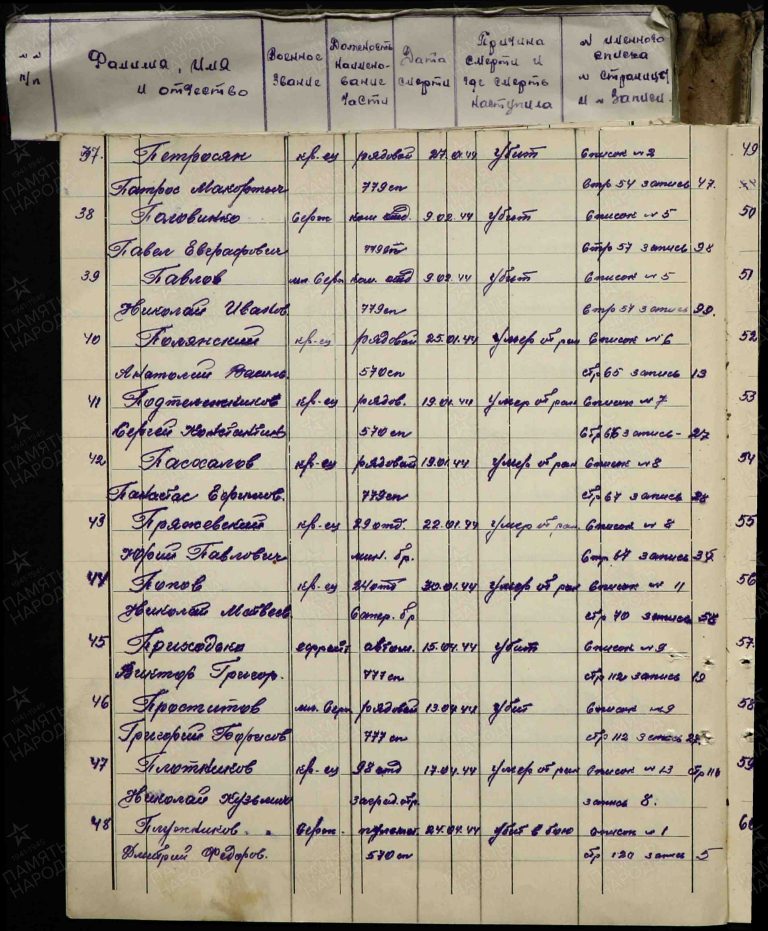 №№ п/п Фамилия, имя и отчество Военное звание Должность наимено-вание части Дата смерти Причина смерти и где смерть наступила № именного списка № страницы и № записи
37. Петросян кр-ец рядовой 27.01.44 убит Список №2 49
Патрос Макортыч 779сп Стр 54 запись 47.
38 Половинко Серж ком отд. 9.02.44 убит Список №5 50
Павел Евграфович 779сп Стр 57 запись 98
39 Павлов мл. Серж ком. отд 9.02.44 убит Список №5 51
Николай Иванов. 779сп Стр 57 запись 99.
40 Полянский кр-ец рядовой 25.01.44 умер от ран Список №6 52
Анатолий Василь. 570сп стр 65 запись 13
41 Подтележников кр-ец рядов. 19.01.44 умер от ран Список №7 53
Сергей Константин 570сп Стр 66 запись- 27
42 Пасхалов кр-ец рядовой 19.01.44 умер от ран Список №8 54
Панастас Ефримов. 779сп стр 67 запись 28
43 Пряжевский кр-ец 29 отд. 22.01.44 умер от ран Список №8 55
Юрий Павлович мин. бр. Стр 67 запись
44 Попов кр-ец 24 отд 30.01.44 умер от ран Список №11 56
Николай Матвеев. бр стр 70 запись 58
45 Приходько ефрейт автом. 15.04.44 убит Список №9 57.
Виктор Григор. 777сп стр 112 запись 19
46 Проститов мл. Серж рядовой 13.04.44 убит Список №9 58
Григорий Борисов 777сп стр 112 запись
47 Плотников кр-ец 98 отд 17.04.44 умер от ран Список №13 стр 116 59
Николай Кузьмич заград. отр. запись 8.
48 Плужников. Серж. пулемет. 24.04.44 убит в бою список №1 60
Дмитрий Федоров. 570сп стр 120 запись 5